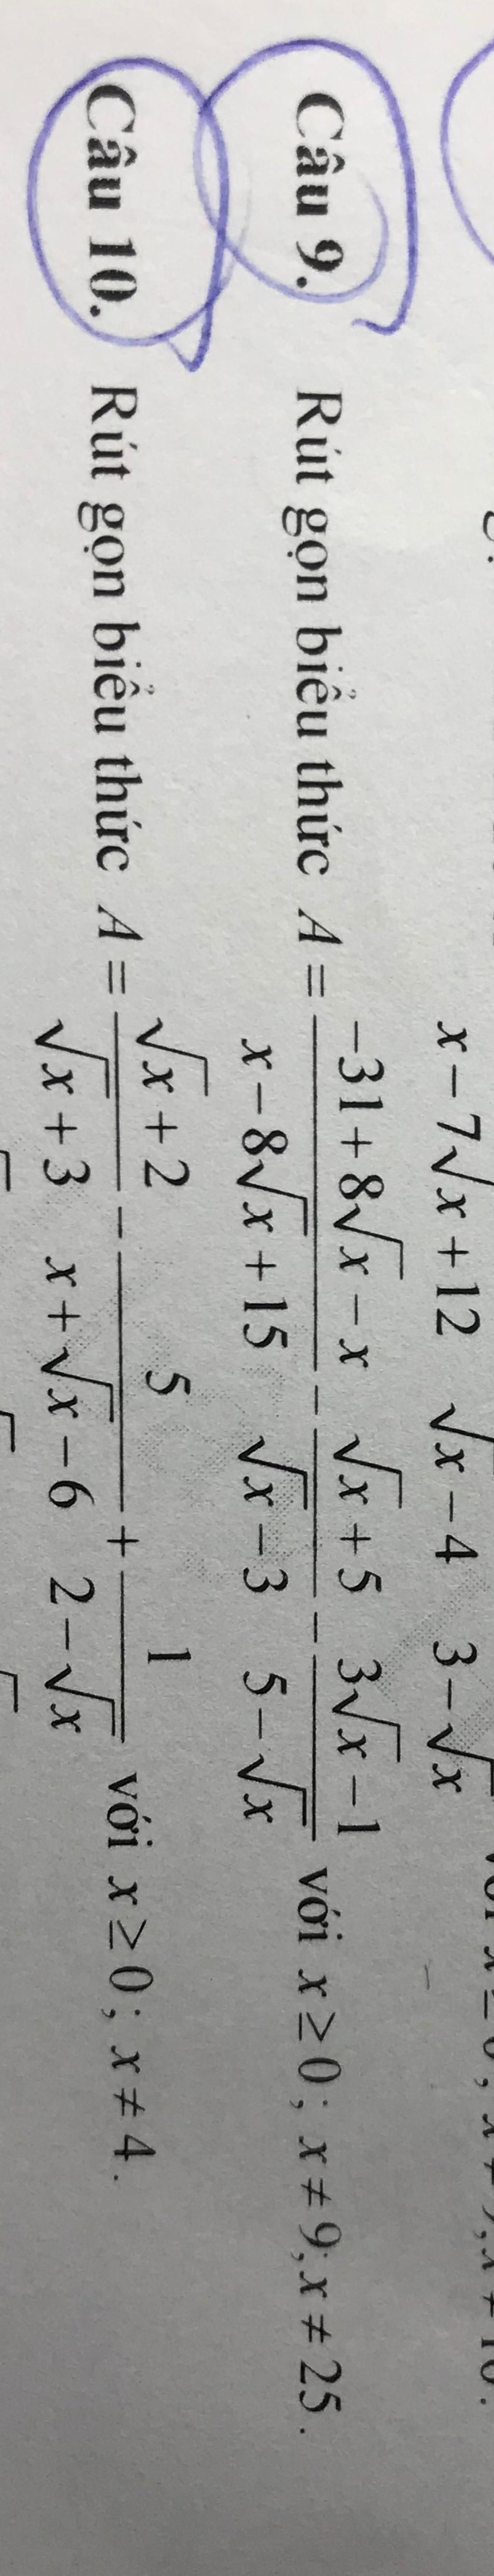 x-7√x+12 √x-4 3-√x
Câu 9. Rút gọn biểu thức A = (-31+8√x-x)/(x-8√x+15) - (√x+5)/(√x-3) - (3√x-1)/(5-√x) với x≥0; x≠9; x≠25.
Câu 10. Rút gọn biểu thức A = (√x+2)/(√x+3) - 5/(x+√x-6) + 1/(2-√x) với x≥0; x≠4.